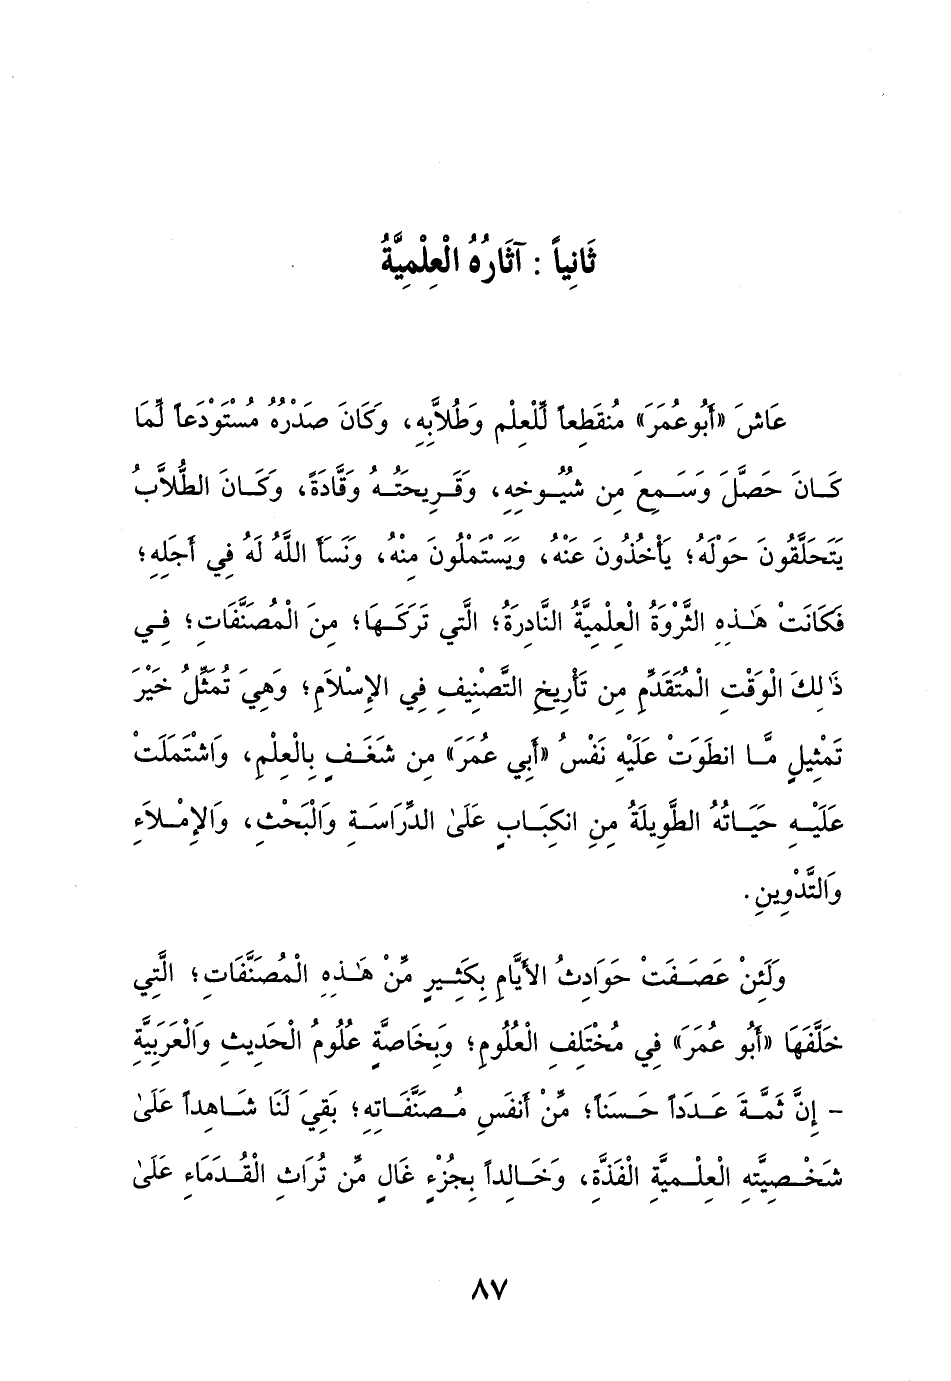 ثَانِياً : آثَارُهُ الْعِلْمِيَّةُ
عَاشَ «أَبُوعُمَرَ» مُنقَطِعاً لِّلْعِلْمِ وَطُلاَّبِهِ، وَكَانَ صَدْرُهُ مُسْتَوْدَعاً لِّمَا
كَانَ حَصَّلَ وَسَمِعَ مِن شُيُوخِهِ، وَقَرِيحَتُهُ وَقَّادَةً، وَكَانَ الطُّلاَّبُ
يَتَحَلَّقُونَ حَوْلَهُ؛ يَأْخُذُونَ عَنْهُ، وَيَسْتَمْلُونَ مِنْهُ، وَنَسَأَ اللَّهُ لَهُ فِي أَجَلِهِ؛
فَكَانَتْ هَٰذِهِ الثَّرْوَةُ الْعِلْمِيَّةُ النَّادِرَةُ؛ الَّتِي تَرَكَهَا؛ مِنَ الْمُصَنَّفَاتِ؛ فِي
ذَٰلِكَ الْوَقْتِ الْمُتَقَدِّمِ مِن تَأْرِيخِ التَّصْنِيفِ فِي الإِسْلاَمِ؛ وَهِيَ تُمَثِّلُ خَيْرَ
تَمْثِيلٍ مَّا انطَوَتْ عَلَيْهِ نَفْسُ «أَبِي عُمَرَ» مِن شَغَفٍ بِالْعِلْمِ، وَاشْتَمَلَتْ
عَلَيْهِ حَيَاتُهُ الطَّوِيلَةُ مِنِ انكِبَابٍ عَلَىٰ الدِّرَاسَةِ وَالْبَحْثِ، وَالإِمْلاَءِ
وَالتَّدْوِينِ.
وَلَئِنْ عَصَفَتْ حَوَادِثُ الأَيَّامِ بِكَثِيرٍ مِّنْ هَٰذِهِ الْمُصَنَّفَاتِ؛ الَّتِي
خَلَّفَهَا «أَبُو عُمَرَ» فِي مُخْتَلِفِ الْعُلُومِ؛ وَبِخَاصَّةٍ عُلُومُ الْحَدِيثِ وَالْعَرَبِيَّةِ
- إِنَّ ثَمَّةَ عَدَداً حَسَناً؛ مِّنْ أَنفَسِ مُصَنَّفَاتِهِ؛ بَقِيَ لَنَا شَاهِداً عَلَىٰ
شَخْصِيَّتِهِ الْعِلْمِيَّةِ الْفَذَّةِ، وَخَالِداً بِجُزْءٍ غَالٍ مِّن تُرَاثِ الْقُدَمَاءِ عَلَىٰ
٨٧